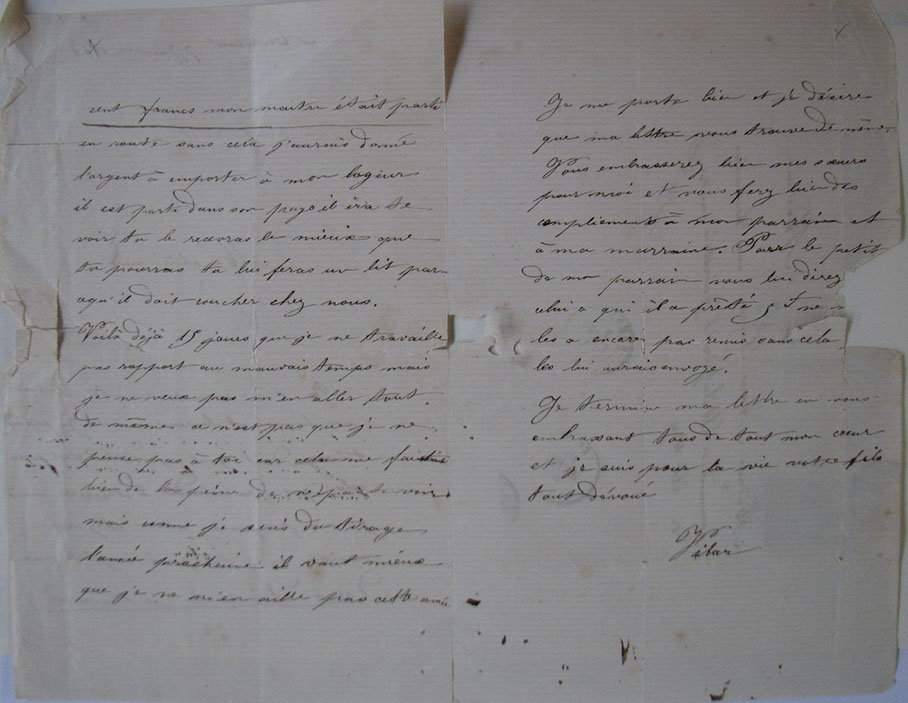 cent francs mon maitre était parti
en route sans cela j'aurais donné
l'argent à emporter à mon logeur
il est parti dans son pays il ira te
voir tu le recevras le mieux que
tu pourras tu lui feras un lit par
qu'il doit coucher chez nous.
Voilà déjà 15 jours que je ne travaille
pas rapport au mauvais temps mais
je ne veux pas m'en aller tout
de même ce n'est pas que je ne
pense pas à toi car cela me fait
bien de la peine de ne pas te voir
mais comme je suis du tirage
l'année prochaine il vaut mieux
que je ne m'en aille pas cette année
Je me porte bien et je désire
que ma lettre vous trouve de même.
Vous embrasserez bien mes sœurs
pour moi et vous ferez bien des
compliments à mon parrain et
à ma marraine. Pour le petit
de mon parrain vous lui direz
celui a qui il a prêté 5 f ne
les a encore pas remis sans cela
les lui aurais envoyé.
Je termine ma lettre en vous
embrassant tous de tout mon cœur
et je suis pour la vie votre fils
tout dévoué